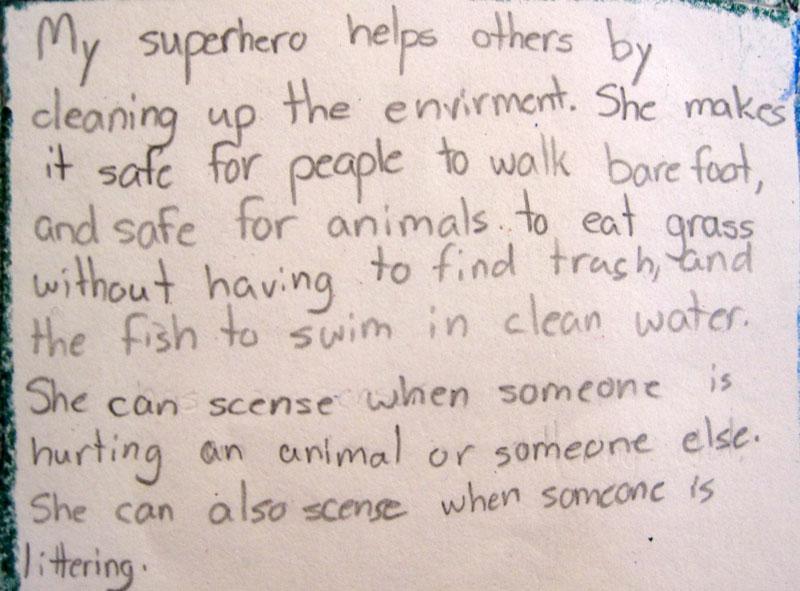 My superhero helps others by
cleaning up the envirment. She makes
it safe for peaple to walk bare foot,
and safe for animals to eat grass
without having to find trash, and
the fish to swim in clean water.
She can scense when someone is
hurting an animal or someone else.
She can also scense when someone is
littering.